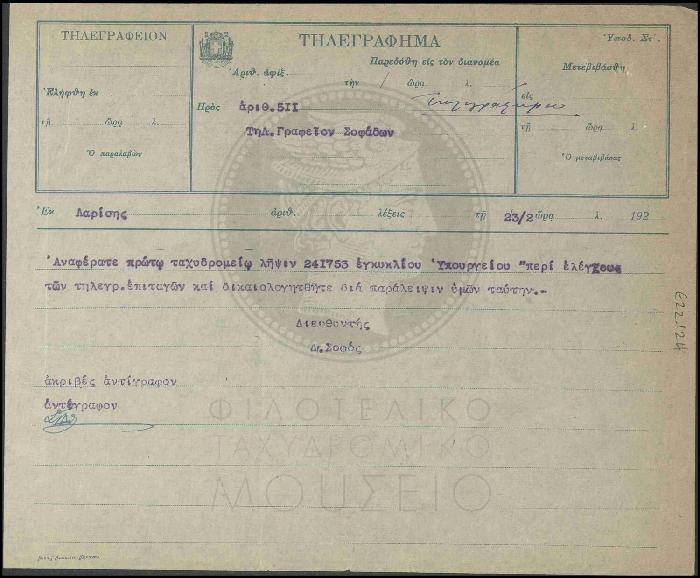 ΤΗΛΕΓΡΑΦΕΙΟΝ
Ἐλήφθη ἐκ
τῇ ὥρᾳ λ.
Ὁ παραλαβὼν
ΤΗΛΕΓΡΑΦΗΜΑ
Παρεδόθη εἰς τὸν διανομέα
Ἀριθ. ἀφίξ. τὴν ὥρα λ.
Πρὸς ἀριθ.5ΙΙ
Τηλ.Γραφεῖον Σοφάδων
Ὑποδ. Στ΄.
Μετεβιβάσθη
εἰς
τῇ ὥρᾳ λ.
Ὁ μεταβιβάσας
Ἐκ Λαρίσης ἀριθ. λέξεις τῇ 23/2 ὥρᾳ λ. 192
Ἀναφέρατε πρώτῳ ταχυδρομείῳ λῆψιν 24Ι753 ἐγκυκλίου Ὑπουργείου "περί ἐλέγχεως
τῶν τηλεγρ.ἐπιταγῶν καί δικαιολογηθῆτε διά παράλειψιν ὑμῶν ταύτην.-
Διευθυντής
Δ. Σοφός
ἀκριβές ἀντίγραφον
ἀντέγραφον
622.124
ΦΙΛΟΤΕΛΙΚΟ
ΤΑΧΥΔΡΟΜΙΚΟ
ΜΟΥΣΕΙΟ